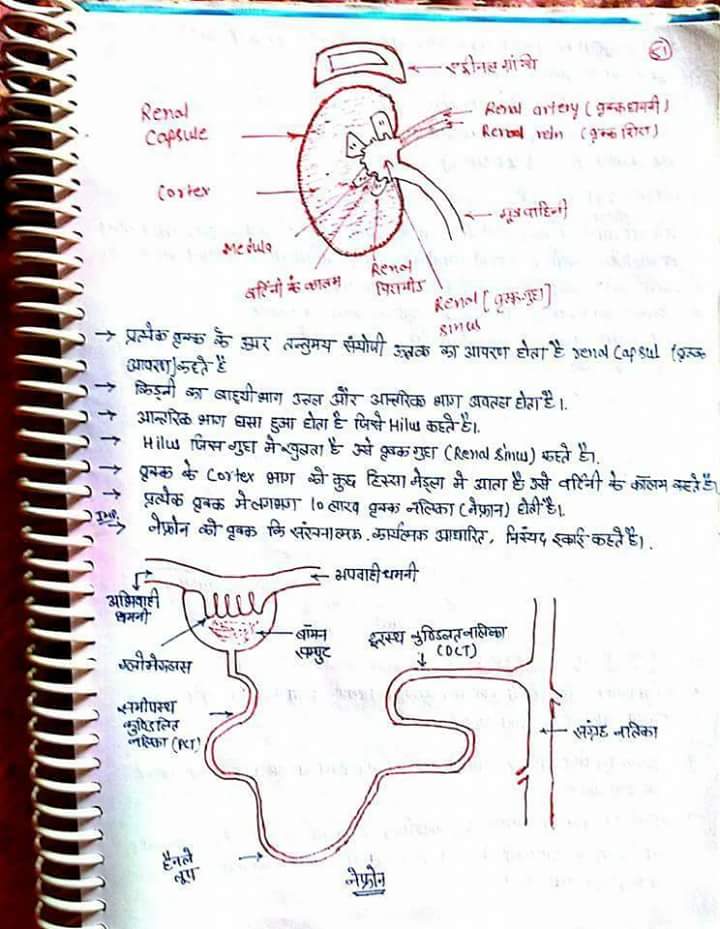 51
एड्रीनल ग्रंथी
Renal artery (वृक्क धमनी)
Renal vein (वृक्क शिरा)
Renal
Capsule
Cortex
मूत्र वाहिनी
Medula
बर्टिनी के कालम
Renal
पिरामीड
Renal [वृक्क गुहा]
Sinus
→ प्रत्येक वृक्क के ऊपर तन्तुमय संयोजी ऊतक का आवरण होता है renal Capsul (वृक्क
आवरण) कहते है
→ किडनी का बाह्यी भाग उत्तल और आन्तरिक भाग अवतल होता है।.
→ आन्तरिक भाग धसा हुआ होता है जिसे Hilus कहते है।.
→ Hilus जिस गुहा मे खुलता है उसे वृक्क गुहा (Renal Sinus) कहते है।.
→ वृक्क के Cortex भाग को कुछ हिस्सा मेडूला मे आता है उसे बर्टिनी के कॉलम कहते है।
→ प्रत्येक वृक्क मे लगभग 10 लाख वृक्क नलिका (नेफ्रान) होती है।.
Imp. → नेफ्रोन को वृक्क कि संरचनात्मक, कार्यात्मक आधारित, निस्यंद इकाई कहते है।.
अपवाही धमनी
अभिवाही
धमनी
बॉमन
सम्पुट
ग्लोमेरुलस
दूरस्थ कुण्डलित नालिका
(DCT)
समीपस्थ
कुण्डलित
नलिका (PCT)
संग्रह नलिका
हेनले
लूप
नेफ्रोन